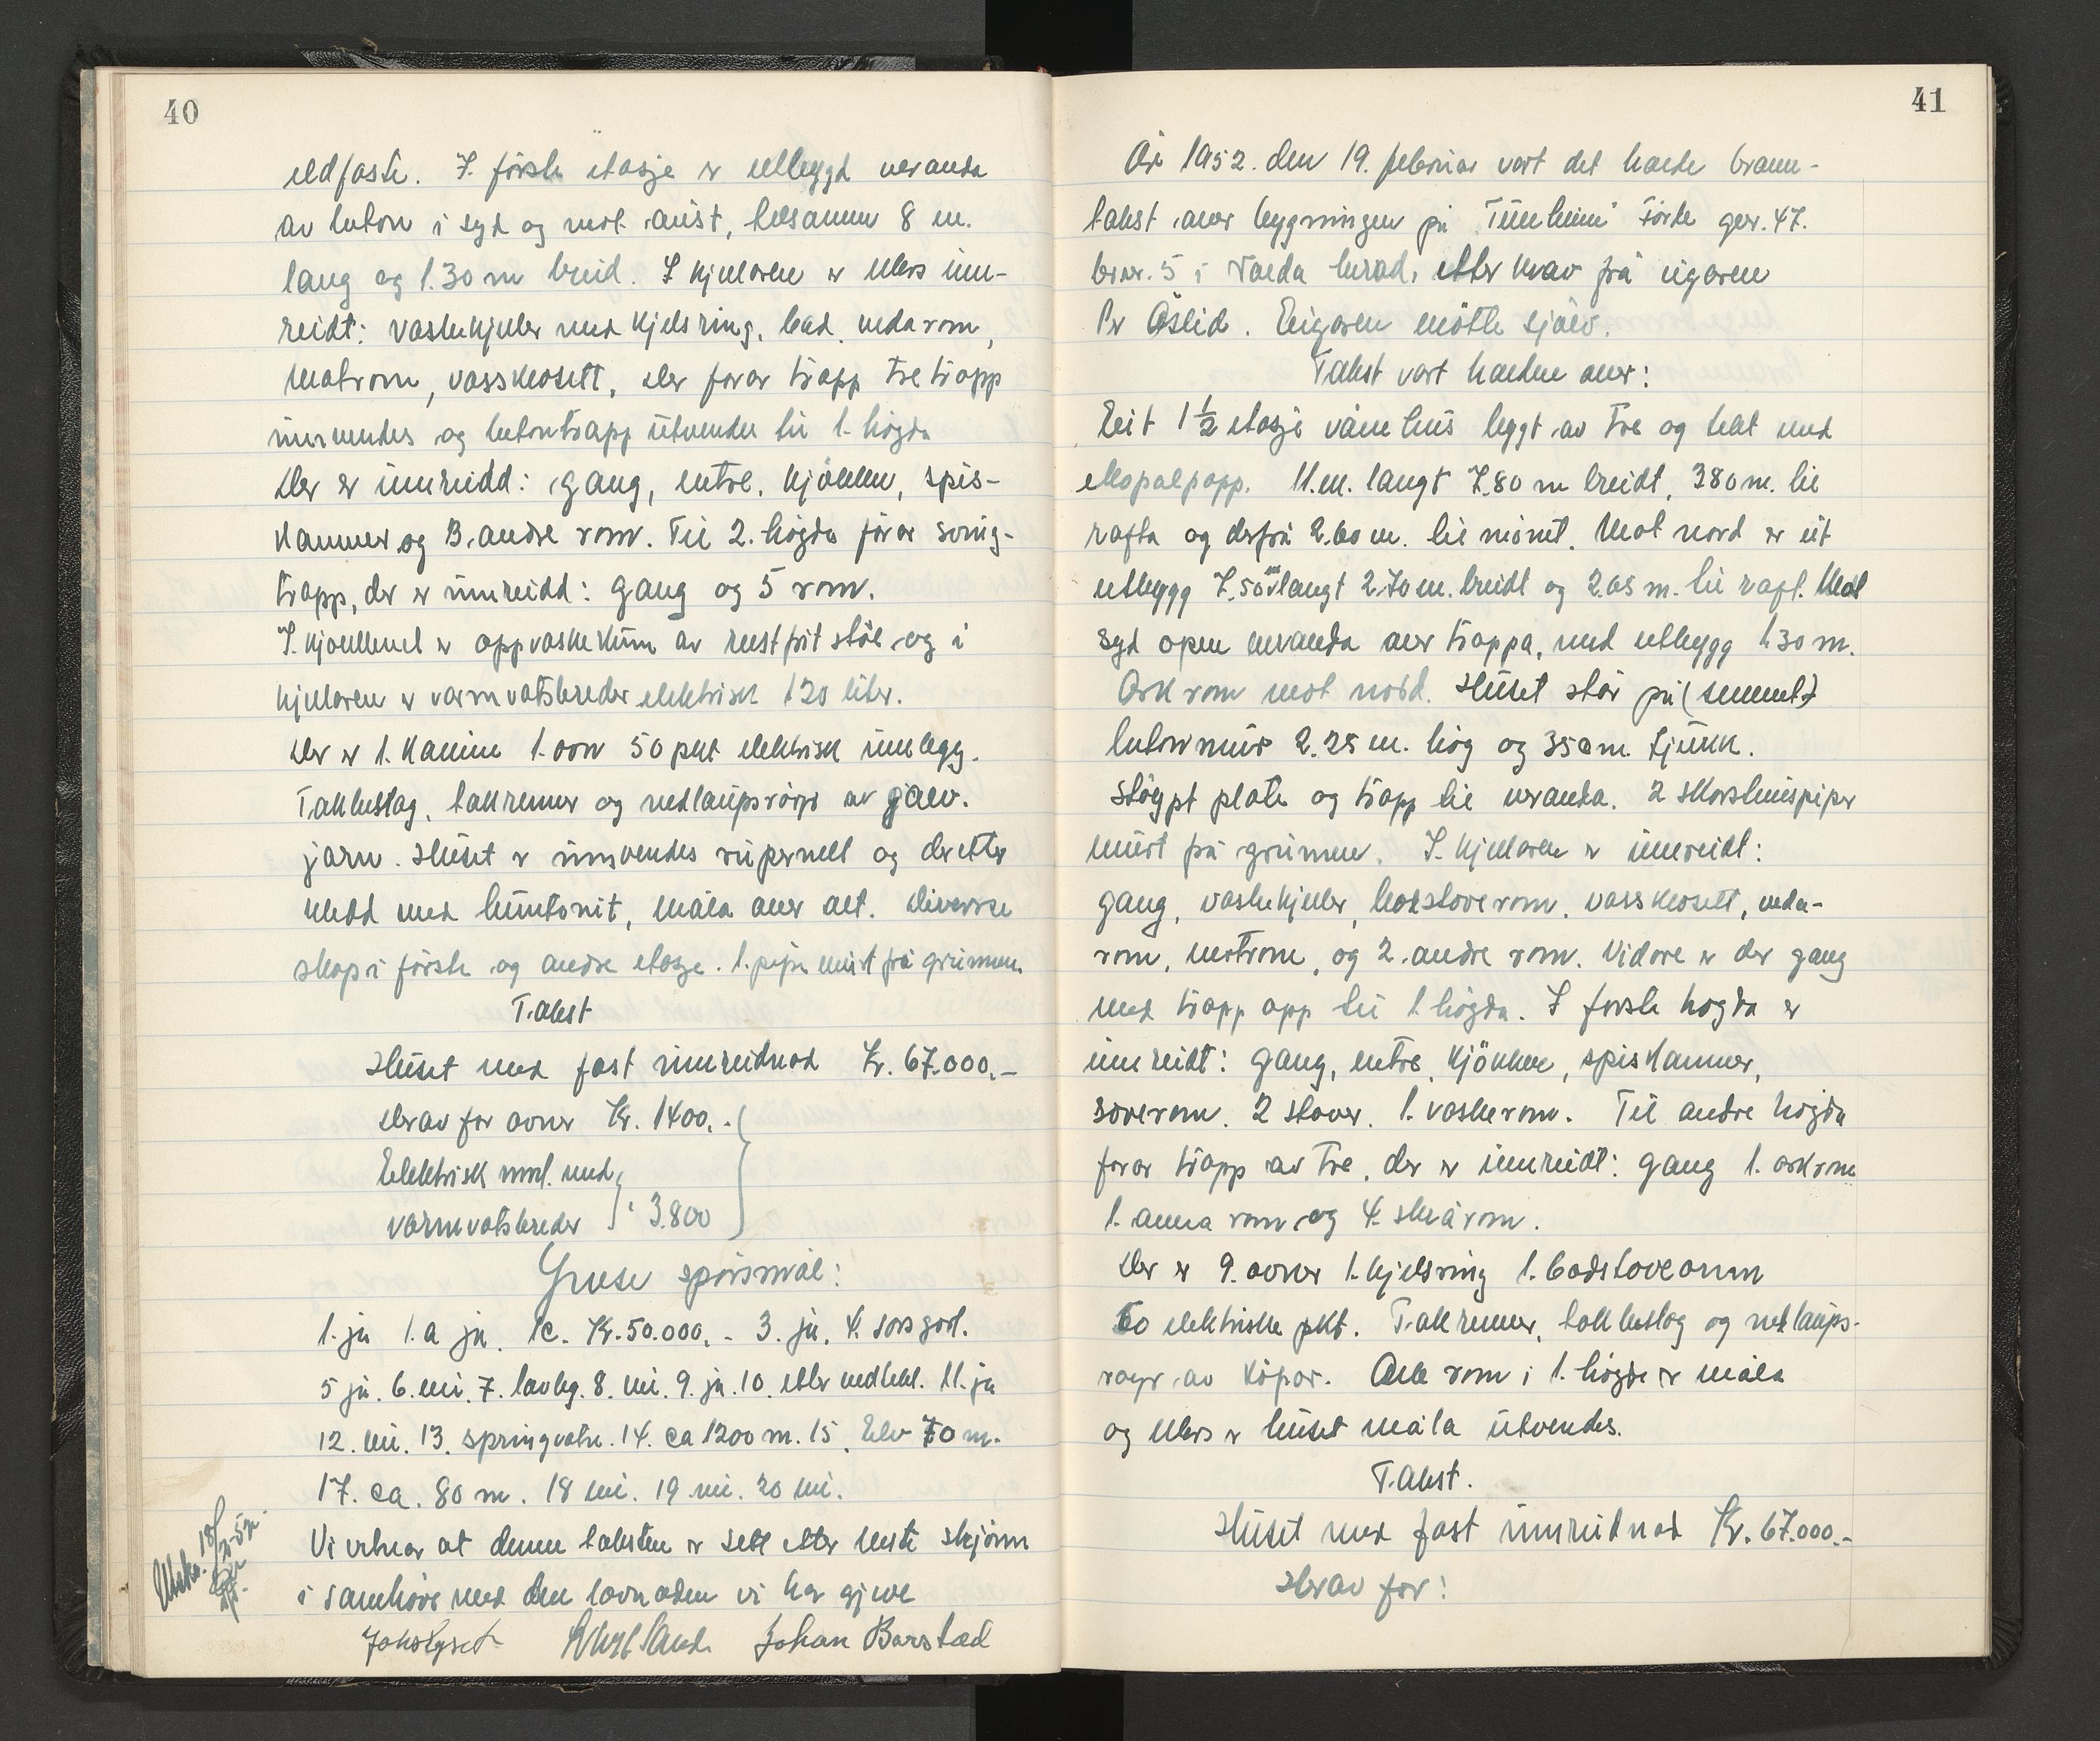 40
eldfaste. I. förste etasje er utbyggd veranda
av beton i syd og mot aust, tilsamen 8 m.
lang og 1.30 m breid. I kjelaren er ellers inn-
reidt: vaskekjeler med kjelsring, bad, vedarom,
matrom, vassklosett, der förar trapp tre trapp
innvendes og betontrapp utvendes til 1. högda
Der er innreidd: gang, entre, kjökken, spis-
kammer og 3. andre rom. Til 2. högda förar sving-
trapp, der er innreidd: gang og 5 rom.
I. kjökkenet er oppvaskekum av rustfrit stål og i
kjelaren er varmvatsbreder elektrisk 120 liter.
Der er 1. kamin 1. ovn 50 pkt elektrisk innlegg.
Takbeslag, takrenner og nedlaupsröyr av galv.
jarn. Huset er innvendes rupanelt og deretter
kledd med huntonit, måla over alt. Diverse
skap i förste og andre etasje. 1. pipe murt frå grunnen.
Takst
Huset med fast innreidnad Kr. 67.000.-
Derav for ovner Kr. 1400.-
Elektrisk innl. med
varmvatsbreder " 3.800
Yruse spörsmål:
1. ja 1.a ja. 1c. Kr. 50.000.- 3. ja. 4. forsgod.
5 ja. 6. nei. 7. lovleg. 8. nei. 9. ja. 10. etter vedtekt. 11. ja
12. nei. 13. springvatn. 14. ca 1200 m. 15. Elv 70 m.
17. ca. 80 m. 18 nei. 19 nei. 20 nei.
Vi vitnar at denne taksten er sett etter beste skjönn
i samhöve med den lovnaden vi har gjeve
Johan Barstad
41
År 1952. den 19. februar vart det halde brann-
takst over bygningen på "Tunheim" Förde gnr. 47.
bnr. 5 i Volda herad, etter krav frå eigaren
Per Åslid. Eigaren mötte sjölv.
Takst vart halden over:
Eit 1½ etasje våne hus bygt av tre og tekt med
ekopalpapp. 11.m. langt 7.80 m breidt, 3.80 m. til
rafta og derfrå 2.60 m. til mönet. Mot nord er eit
utbygg 7.50 m langt 2.70 m. breidt og 2.65 m. til raft. Mot
syd open veranda over trappa, med utbygg 1.30 m.
Ark rom mot nord. Huset står på (sement)
betonmur 2.25 m. hög og 35 cm. tjukk.
Stöypt plate og trapp til veranda. 2 skorsteinspiper
murt frå grunnen. I. kjelaren er innreidt:
gang, vaskekjeler, badstoverom, vassklosett, veda-
rom, matrom, og 2. andre rom. Vidare er der gang
med trapp opp til 1 högda. I forste hogda er
innreidt: gang, entre, kjökken, spiskammer,
soverom. 2 stover. 1. vaskerom. Til andre högda
forar trapp av tre, der er innreidt: gang 1. arkrom
1. anna rom og 4. skrårom.
Der er 9. ovner 1. kjelsring 1. badstoveomn
60 elektriske pkt. Takrenner, takbeslag og nedlaups-
royr av kopar. Alle rom i 1. högda er måla
og ellers er huset måla utvendes.
Takst.
Huset med fast innreidnad Kr. 67.000.-
Derav for: